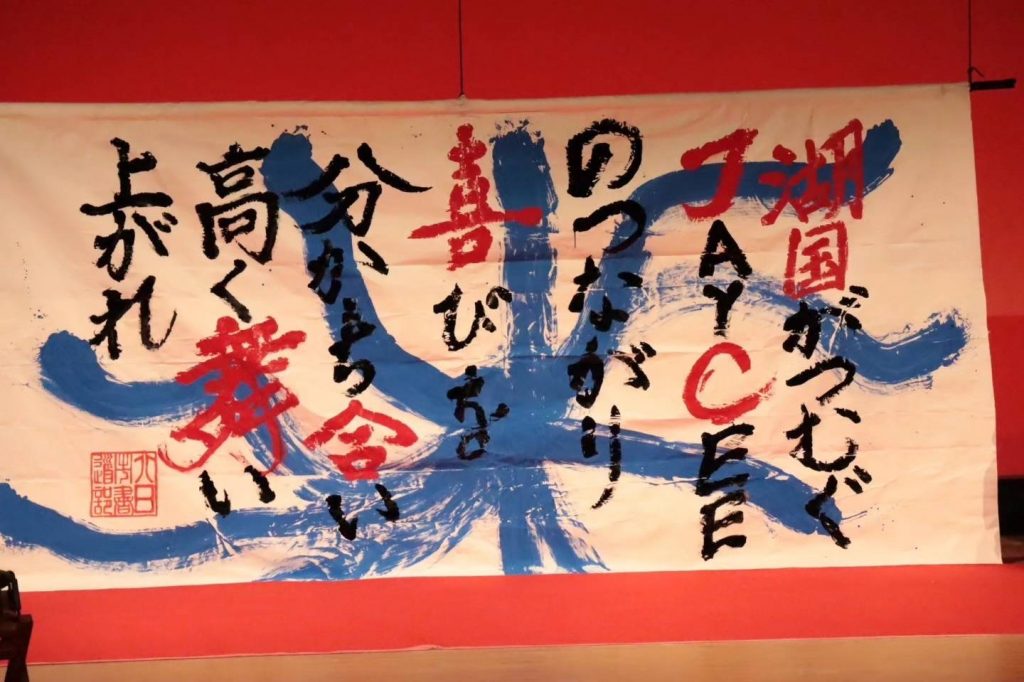 湖国がつむぐ
JAYCEE
のつながり
喜びを
分かち合い
高く舞い
上がれ